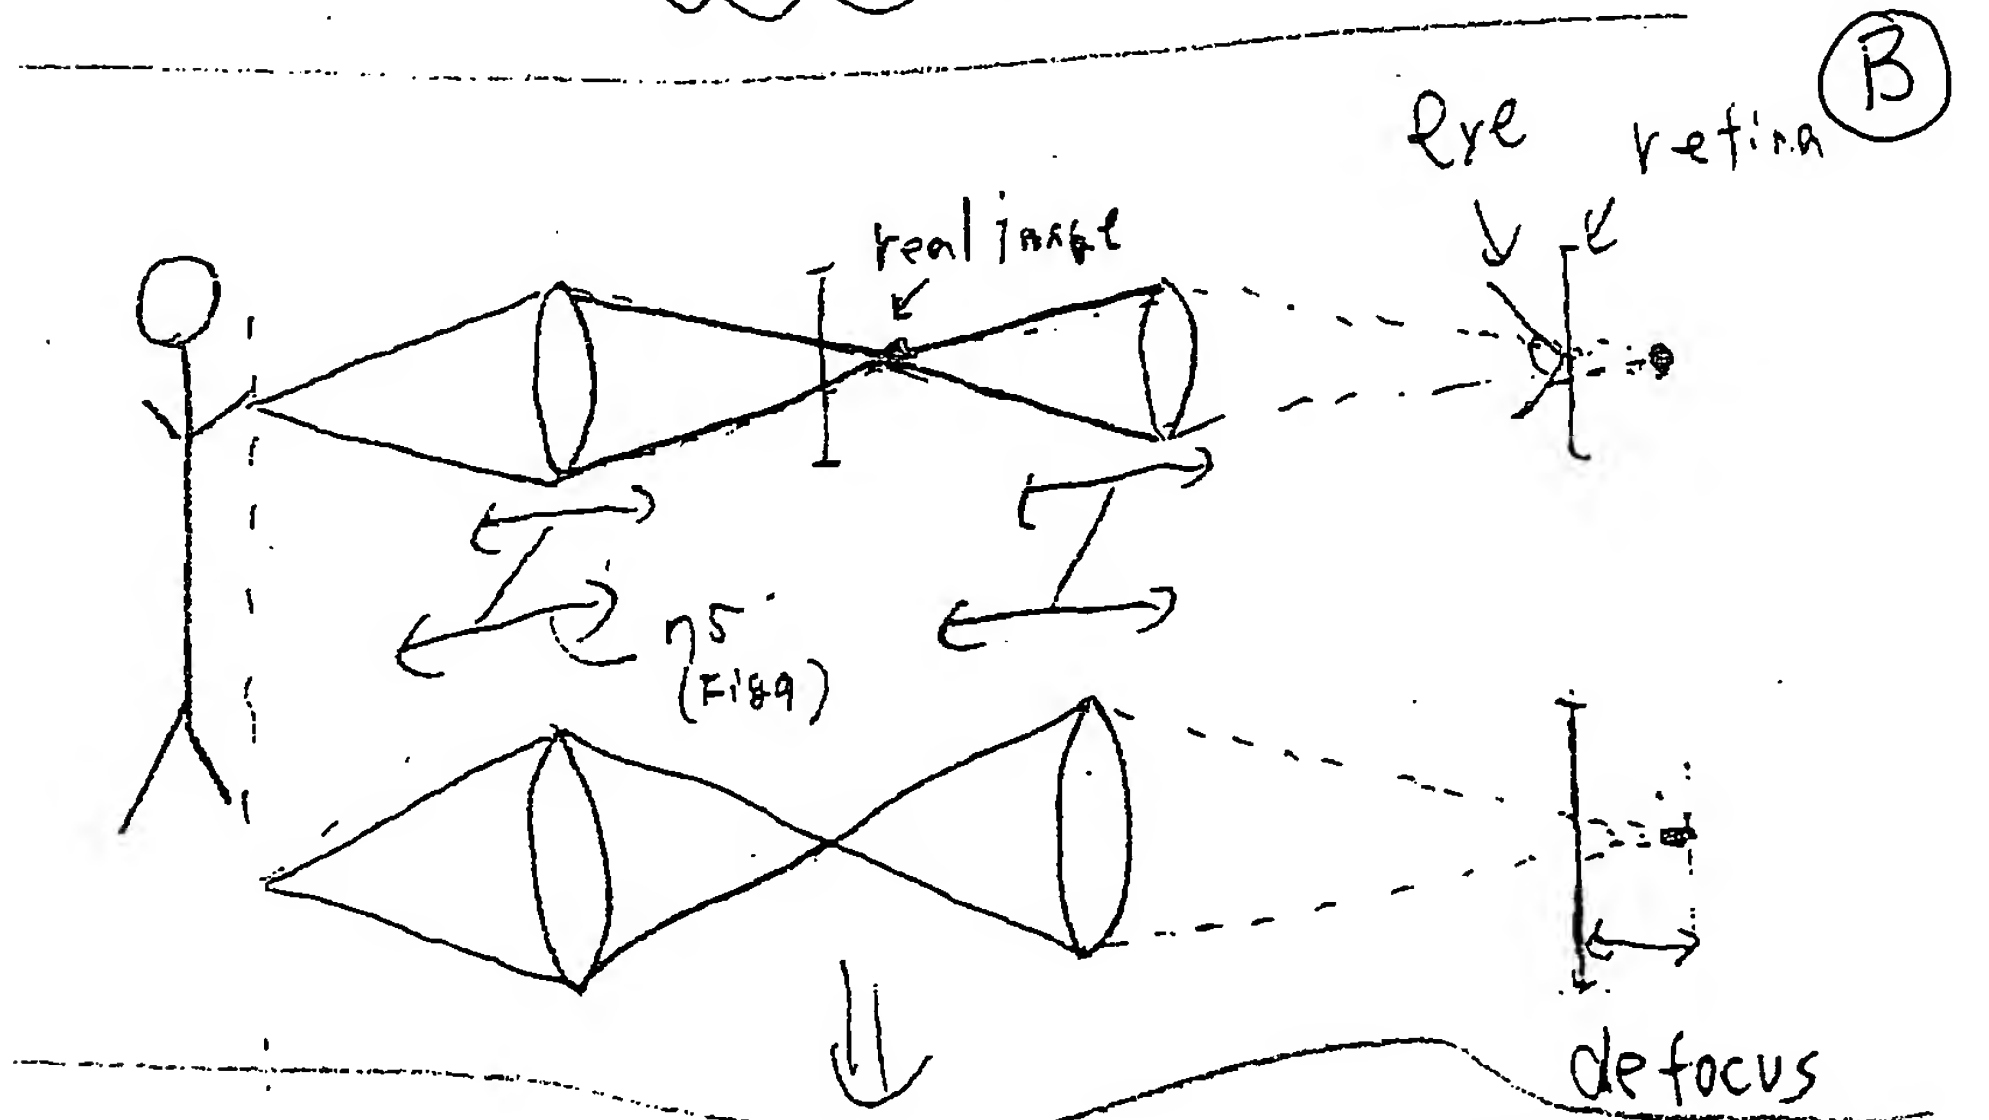 B
eye
retina
real image
η5
(Fig9)
defocus